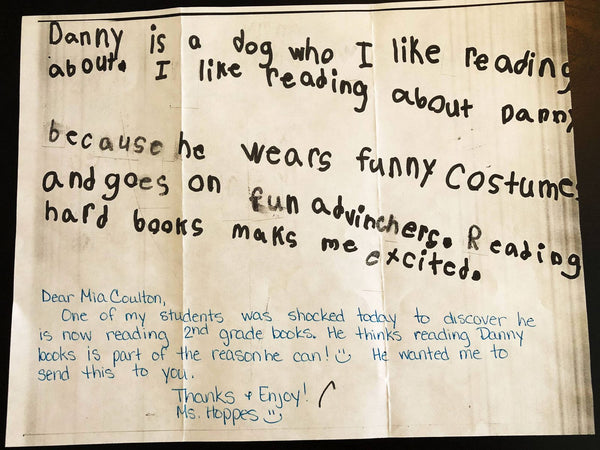 Danny is a dog who I like reading
about. I like reading about Danny
because he wears funny costumes
and goes on fun advinchers. Reading
hard books maks me excited.
Dear Mia Coulton,
One of my students was shocked today to discover he
is now reading 2nd grade books. He thinks reading Danny
books is part of the reason he can! He wanted me to
send this to you.
Thanks + Enjoy!
Ms. Hoppes